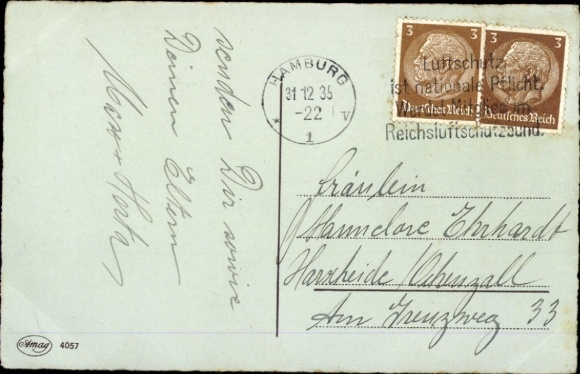 senden Dir sowie
Deinen Eltern
HAMBURG
31.12.35
-22 V
* 1
3 3
Deutsches Reich Deutsches Reich
Luftschutz
ist nationale Pflicht.
Werde Mitglied im
Reichsluftschutzbund.
Fräulein
Hannelore Ehrhardt
Harxheide Ochenzoll
Am Grenzweg 33
Amag 4057